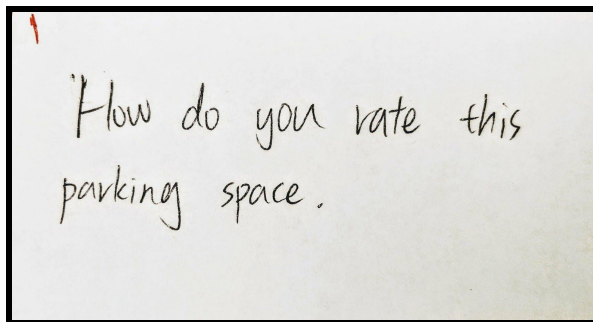 How do you rate this
parking space.